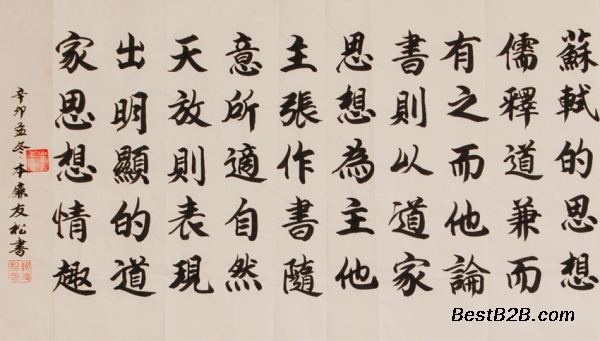 蘇軾的思想
儒釋道兼而
有之而他論
書則以道家
思想為主他
主張作書隨
意所適自然
天放則表現
出明顯的道
家思想情趣
辛卯孟冬本廉友松書
BestB2B.com